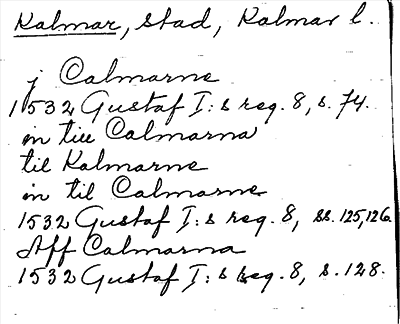 Kalmar, stad, Kalmar l.
j Calmarne
1532 Gustaf I:s reg. 8, s. 74.
in till Calmarna
til Kalmarne
in til Calmarne
1532 Gustaf I:s reg. 8, ss. 125, 126.
Aff Calmarna
1532 Gustaf I:s reg. 8, s. 128.